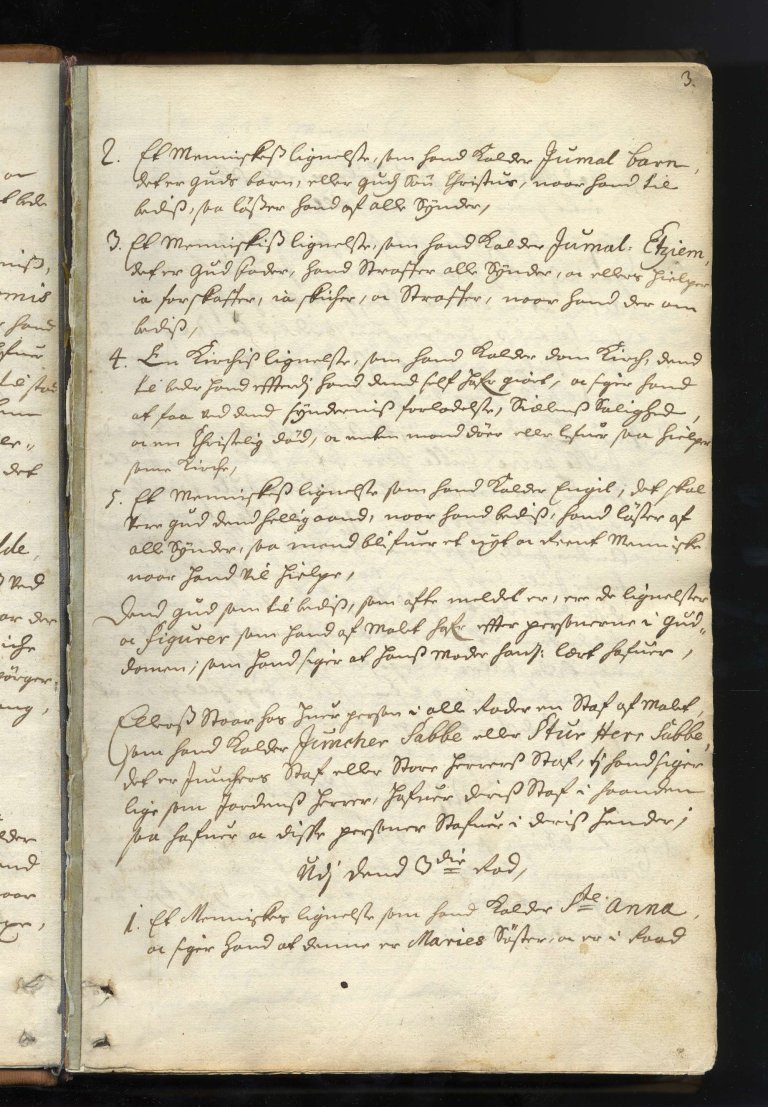 3.
2. Et Menniskis lignelse, som hand Kalder Jumal Barn,
det er Guds barn, eller Guds Søn Christus, naar hand til
bediß, saa løßer hand af alle Synder,
3. Et Menniskis lignelse, som hand Kalder Jumal: Etziem,
det er Gud fader, hand Straffer alle Synder, oc ellers hielper
in forskaffer, in skicher, oc Straffer, naar hand der om
bediß,
4. En Kirchis lignelse, som hand Kalder dom Kirch, dend
til beder hand effterdj hand dend self hafr giort, oc siger hand
at faa ved dend Syndernis forladelse, Siælens Salighed,
oc en Christelig død, oc enten mand døer eller lefuer saa hielper
samme Kirche,
5. Et Menniskes lignelse som hand Kalder Engil, det skal
være Gud dend hellig aand, naar hand bediß, hand løser af
alle Synder, saa mand blifuer et nyt oc reent Menniske
naar hand vil hielpe,
Dend Gud som til bediß, som ofte meldet er, ere de lignelser
oc figurer som hand af Malet hafr effter personerne i Gud-
domen, som hand siger at hans Moder hans: lært hafuer,
Ellers Staar hos huer person i alle Rader en Staf af Malet,
som hand Kalder Juncher Sabbe eller Stur Herr Sabbe,
det er Junchers Staf eller Store Herrers Staf, tj hand siger
lige som Jordens Herrer, hafuer deris Staf i haanden
saa hafuer oc disse personer Stafuer i deris Hender,
Udj dend 3die Rad,
1. Et Menniskes lignelse som hand Kalder Ste: Anna,
oc siger hand at denne er Maries Søster, oc er i Raad